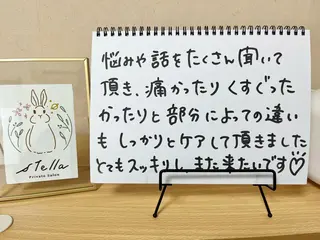 悩みや話をたくさん聞いて
頂き、痛かったりくすぐった
かったりと部分によっての違い
も しっかりとケアして頂きました
とてもスッキリし、また来たいです♡
stella
Private Salon